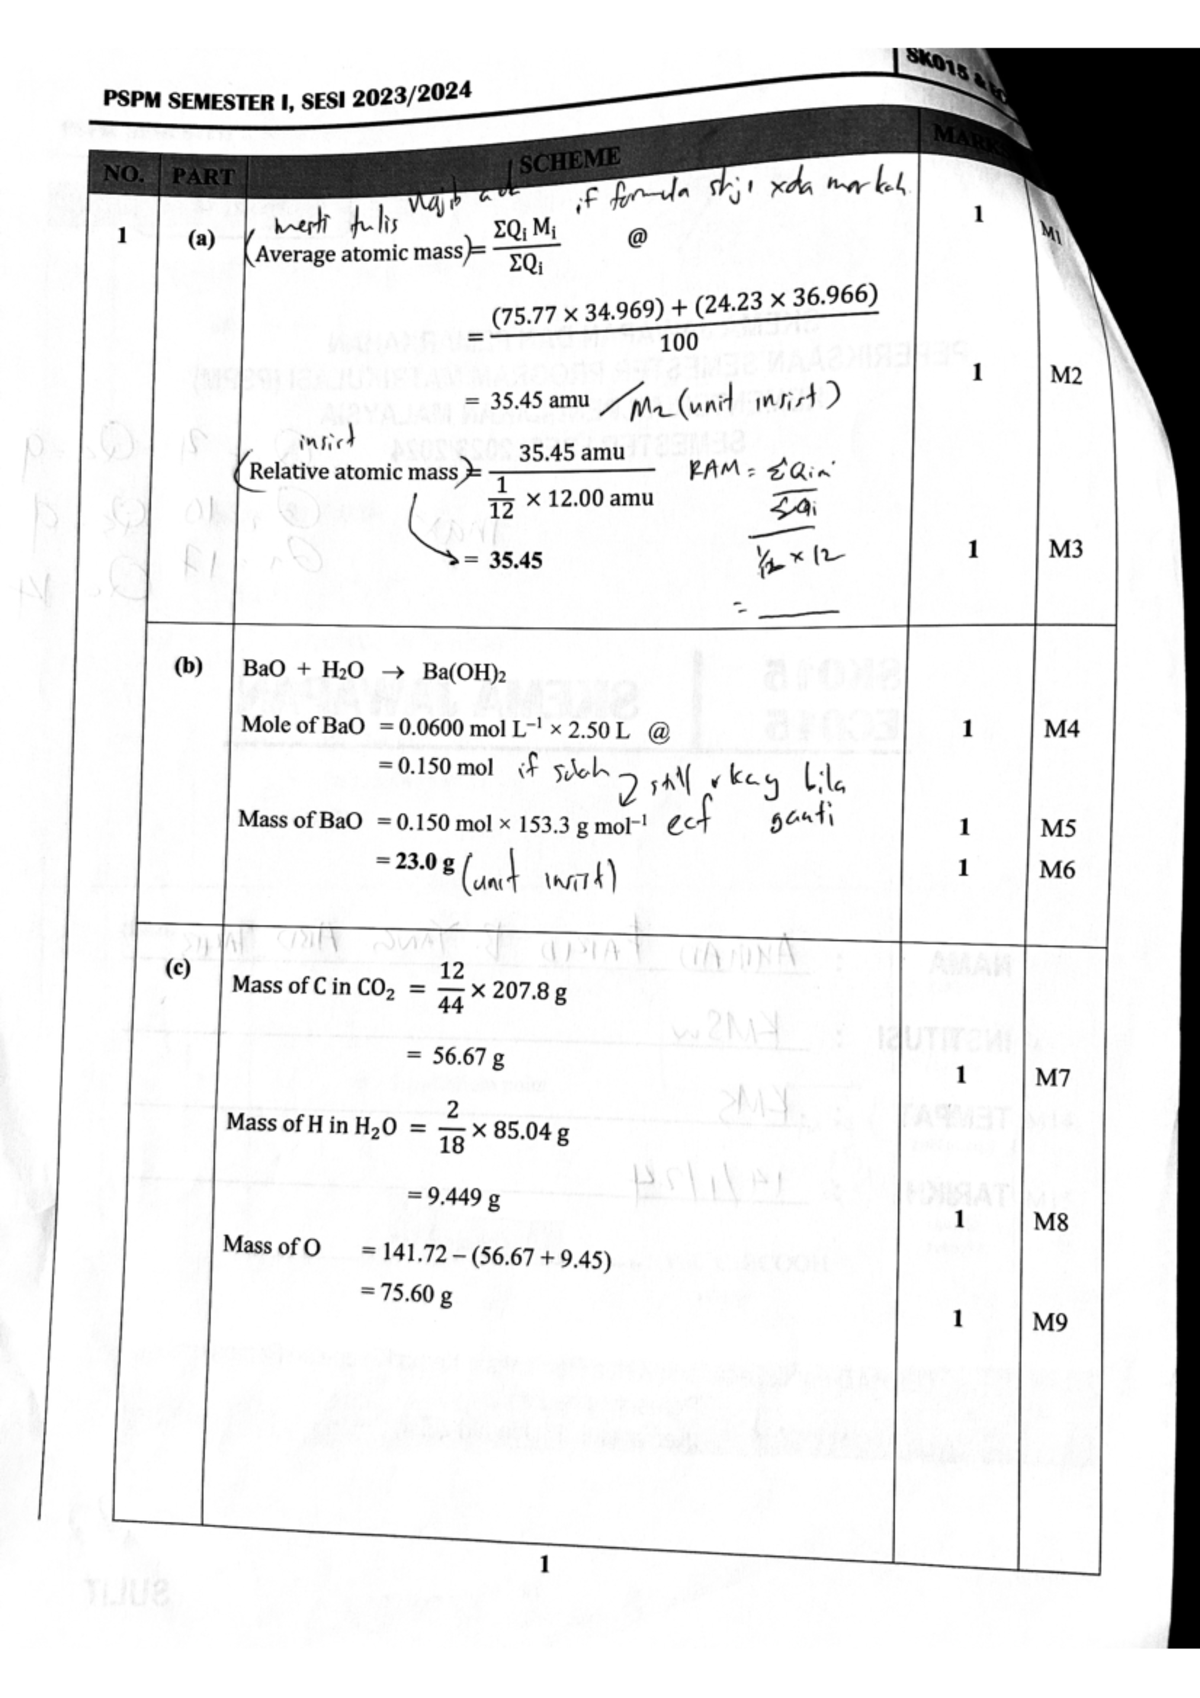 SK015 &
PSPM SEMESTER I, SESI 2023/2024
NO. PART SCHEME MARKS
wajib ada if formula shj, xda markah
mesti tulis
1 (a) (Average atomic mass) = ΣQi Mi / ΣQi @ 1 M1
= (75.77 × 34.969) + (24.23 × 36.966) / 100
= 35.45 amu / M2 (unit insist) 1 M2
insist
(Relative atomic mass) = 35.45 amu / 1/12 × 12.00 amu
RAM = ΣQim
ΣQi
1/12 × 12
=
= 35.45 1 M3
(b) BaO + H₂O → Ba(OH)₂
Mole of BaO = 0.0600 mol L⁻¹ × 2.50 L @ 1 M4
= 0.150 mol if salah still okay bila
Mass of BaO = 0.150 mol × 153.3 g mol⁻¹ ecf ganti 1 M5
= 23.0 g (unit insist) 1 M6
(c) Mass of C in CO₂ = 12/44 × 207.8 g
= 56.67 g 1 M7
Mass of H in H₂O = 2/18 × 85.04 g
= 9.449 g 1 M8
Mass of O = 141.72 – (56.67 + 9.45)
= 75.60 g 1 M9
1
SULIT